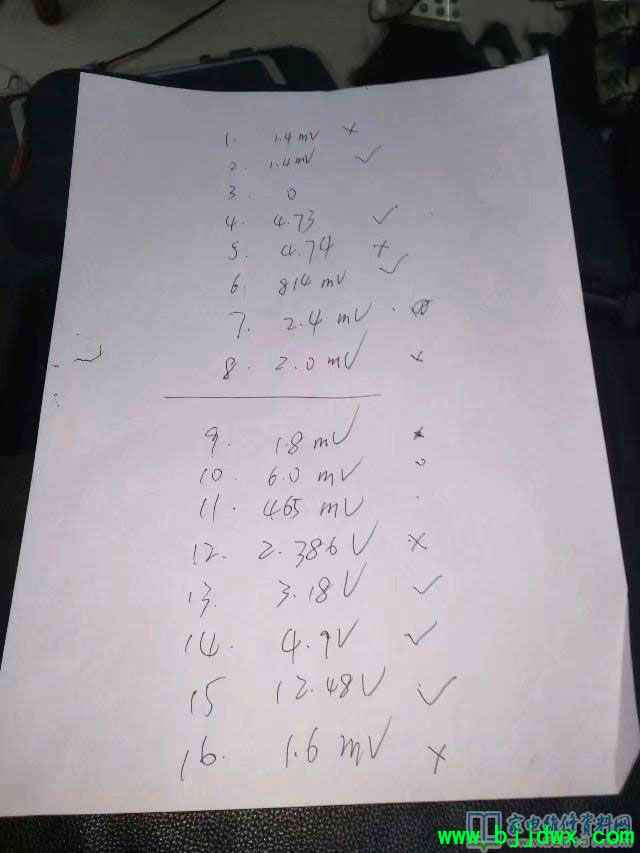 1. 1.4 mV ×
2. 1.4 mV ✓
3. 0
4. 4.73 ✓
5. 4.74 ×
6. 814 mV ✓
7. 2.4 mV
8. 2.0 mV ×
9. 1.8 mV ×
10. 6.0 mV 0
11. 465 mV
12. 2.386 V ×
13. 3.18 V ✓
14. 4.9 V ✓
15 12.48 V ✓
16. 1.6 mV ×
家电维修资料网
www.bjjdwx.com